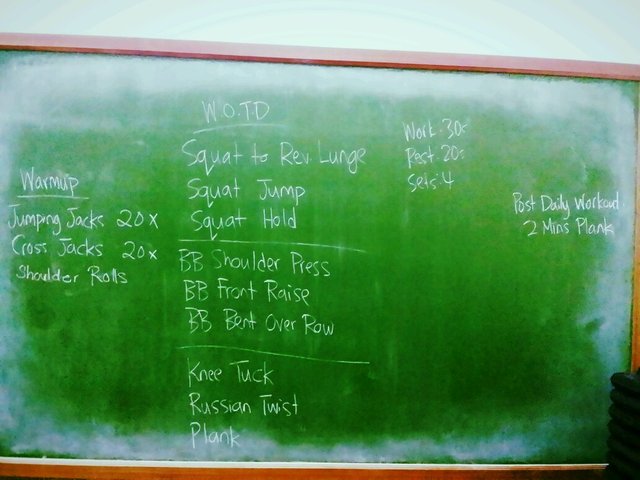 Warmup
Jumping Jacks 20x
Cross Jacks 20x
Shoulder Rolls
W.O.TD
Squat to Rev. Lunge
Squat Jump
Squat Hold
BB Shoulder Press
BB Front Raise
BB Bent Over Row
Knee Tuck
Russian Twist
Plank
Work: 30s
Rest: 20s
Sets: 4
Post Daily Workout
2 Mins Plank